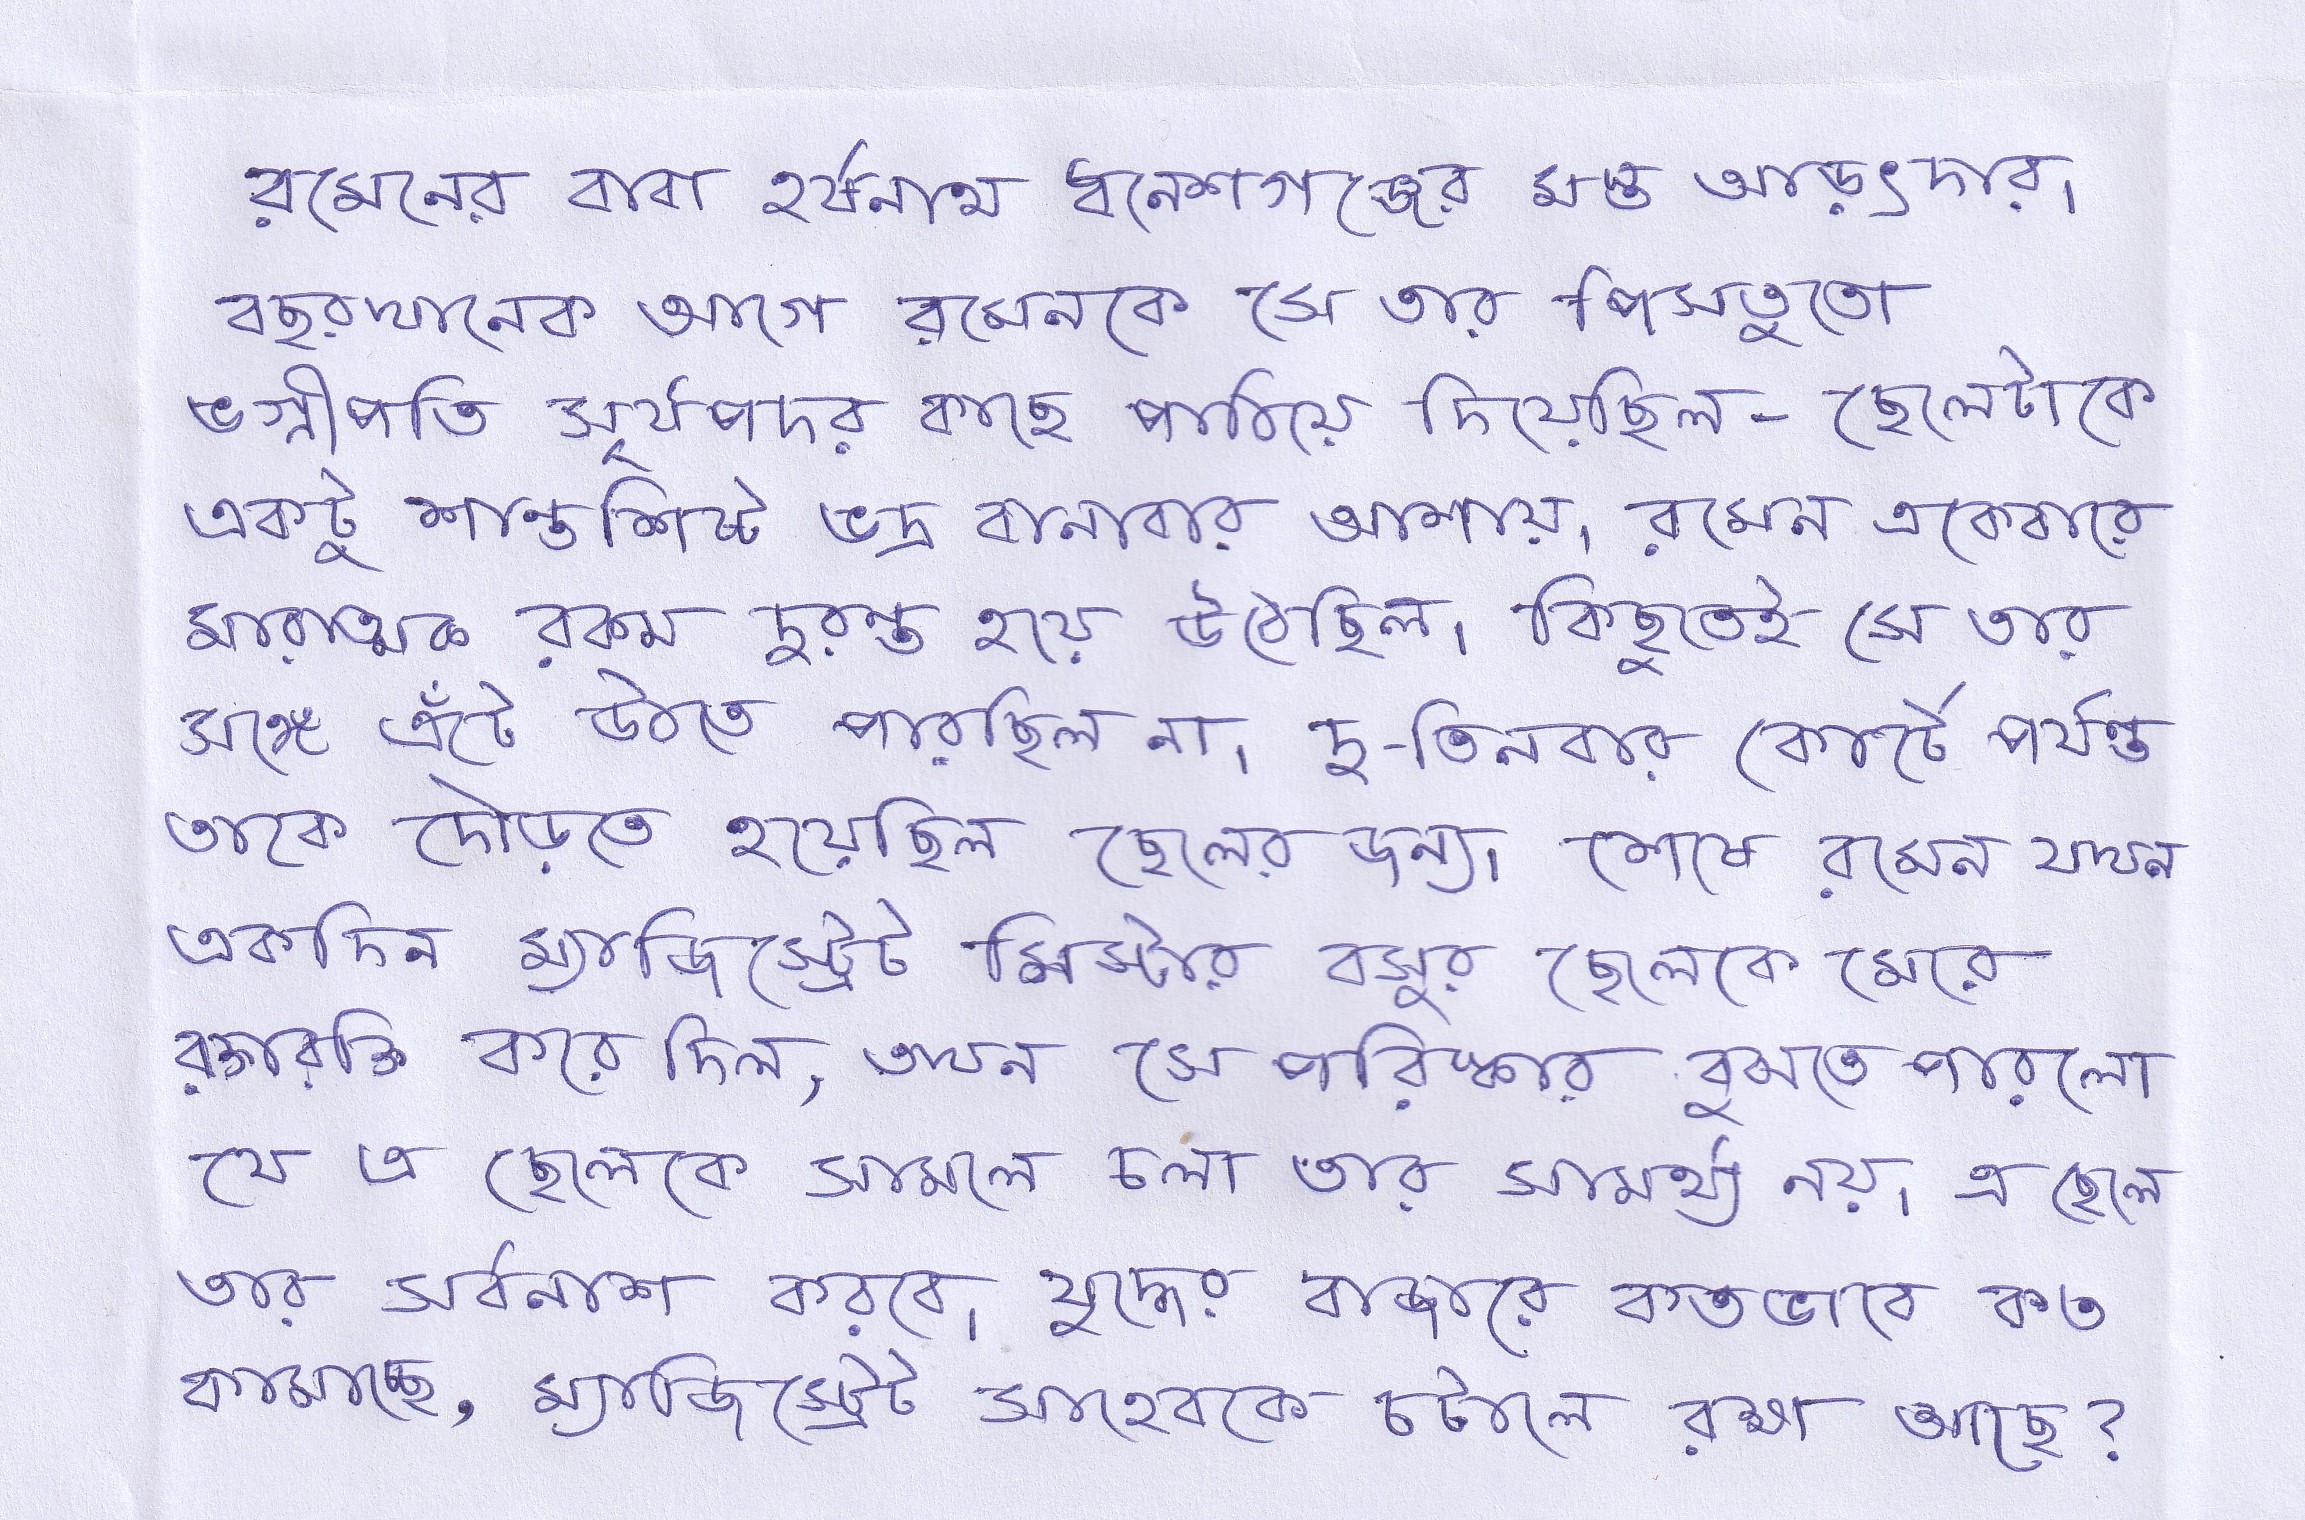 রমেনের বাবা হর্ষনাথ ধনেশগঞ্জের মস্ত আড়ৎদার।
বছরখানেক আগে রমেনকে সে তার পিসতুতো
ভগ্নীপতি সূর্যপদর কাছে পাঠিয়ে দিয়েছিল- ছেলেটাকে
একটু শান্তশিষ্ট ভদ্র বানাবার আশায়। রমেন একেবারে
মারাত্মক রকম দুরন্ত হয়ে উঠেছিল। কিছুতেই সে তার
সঙ্গে এঁটে উঠতে পারছিল না। দু-তিনবার কোর্টে পর্যন্ত
তাকে দৌড়তে হয়েছিল ছেলের জন্য। শেষে রমেন যখন
একদিন ম্যাজিস্ট্রেট মিস্টার বসুর ছেলেকে মেরে
রক্তারক্তি করে দিল, তখন সে পরিষ্কার বুঝতে পারলো
যে এ ছেলেকে সামলে চলা তার সামর্থ্য নয়। এ ছেলে
তার সর্বনাশ করবে। যুদ্ধের বাজারে কতভাবে কত
কামাচ্ছে, ম্যাজিস্ট্রেট সাহেবকে চটালে রক্ষা আছে?